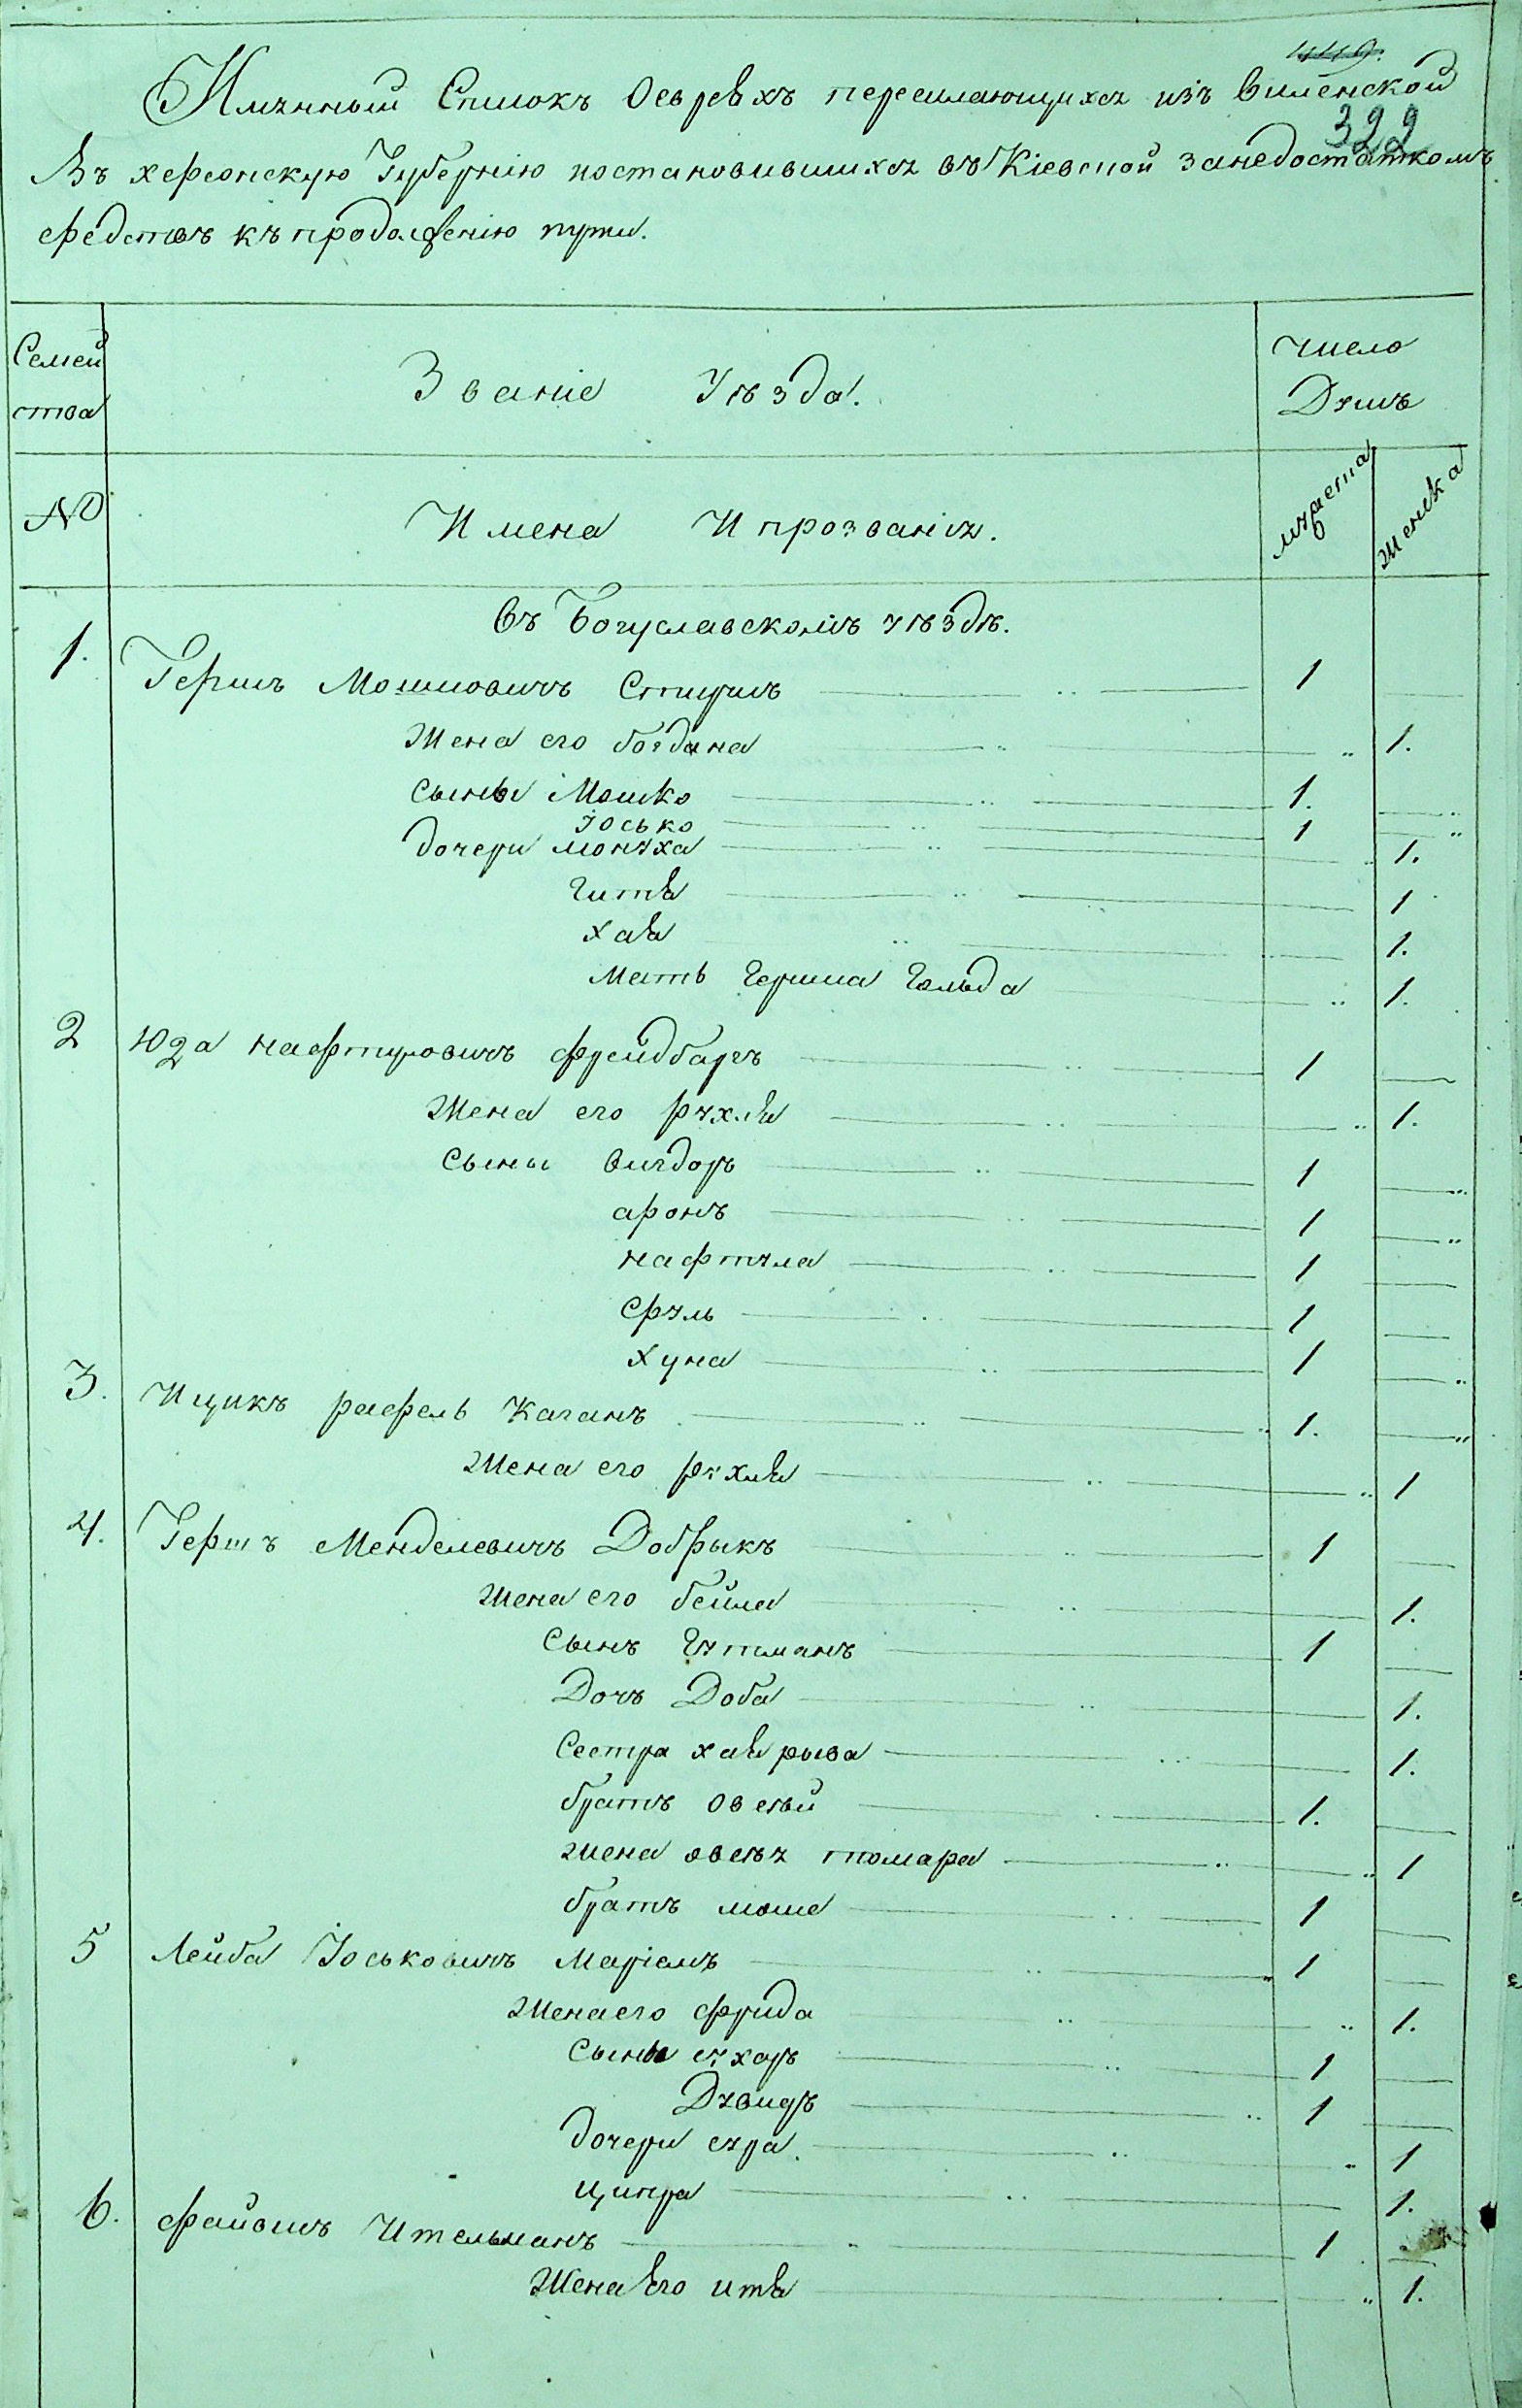 449.
Имянный Списокъ Осеврѣхъ переилающихся изъ Виленской
322
Въ херсонскую Губернію поставовившихся въ Кіевской занедостаткомъ
средствъ къ продолженію пути.
Семей
ства
Званіе Уѣзда.
Число
Душъ
№
Имена И прозванія.
мужеска
женска
Въ Богуславскомъ уѣздѣ.
1. Гершъ Мошковичъ Спиришъ 1
Жена его богдана 1.
Сыны Мошко 1.
Іосько 1
дочери монуха 1.
гитля 1
хая 1.
Мать Герша Гольда 1.
2 Юда нафтуровичъ фрейдбаргъ 1
Жена его рухля 1.
Сыны Вигдоръ 1
аронъ 1
нафтула 1
Сруль 1
хуна 1
3. Ицикъ рафель Каганъ 1.
Жена его рухля 1
4. Гершъ Менделевичъ Добрыкъ 1
Жена его бейла 1.
Сынъ Гутманъ 1
Дочъ Доба 1.
Сестра хая рыва 1.
братъ овсѣй 1.
жена овсѣя томара 1
братъ моше 1
5 Лейба Іоськовичъ Маріамъ 1
Жена его фрида 1.
Сыны сухаръ 1
Дувидъ 1
дочери сура 1
ципра 1.
6. файвишъ Ительманъ 1
Жена Его итя 1.